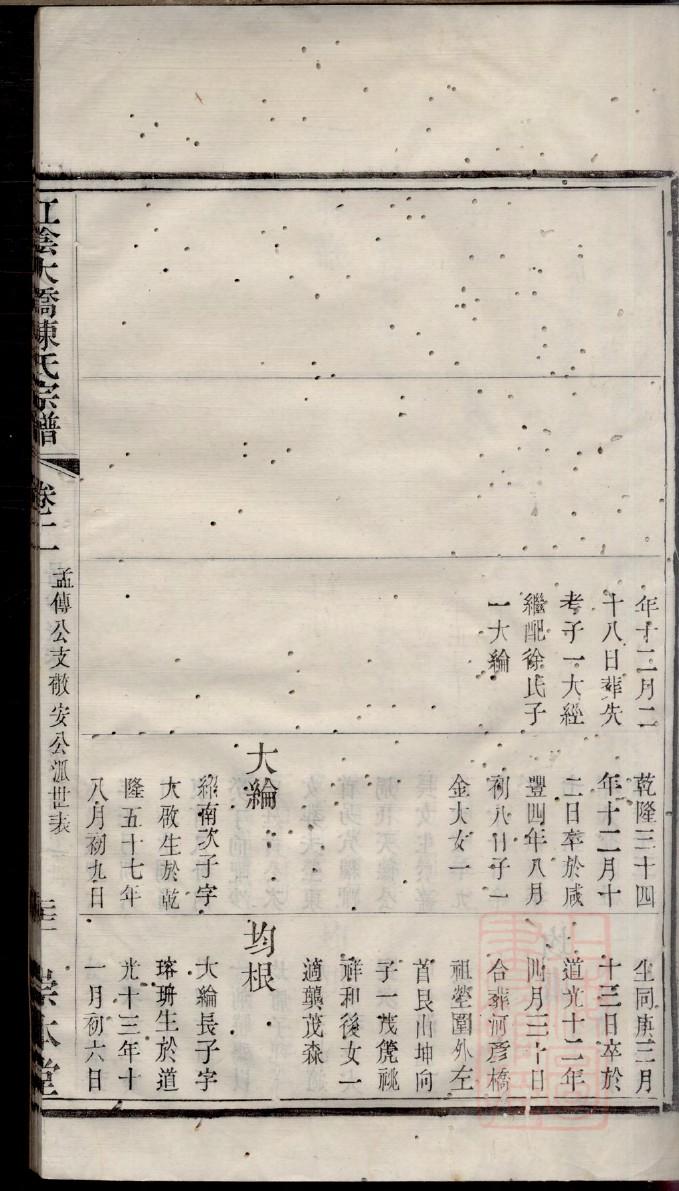 年十二月二
十八日葬先
考子一大經
繼配徐氏子
一大綸
乾隆三十四
年十二月十
二日卒於咸
豐四年八月
初八日子一
金大女一
大綸
紹南次子字
大啟生於乾
隆五十七年
八月初九日
生同庚三月
十三日卒於
道光十二年
四月三十日
合葬河彥橋
祖塋圍外左
首艮山坤向
子一茂 祧
祥和後女一
適龔茂森
均根
大綸長子字
瑢珊生於道
光十三年十
一月初六日
江陰大橋陳氏宗譜
卷二
孟傳公支敬安公派世表
崇本堂